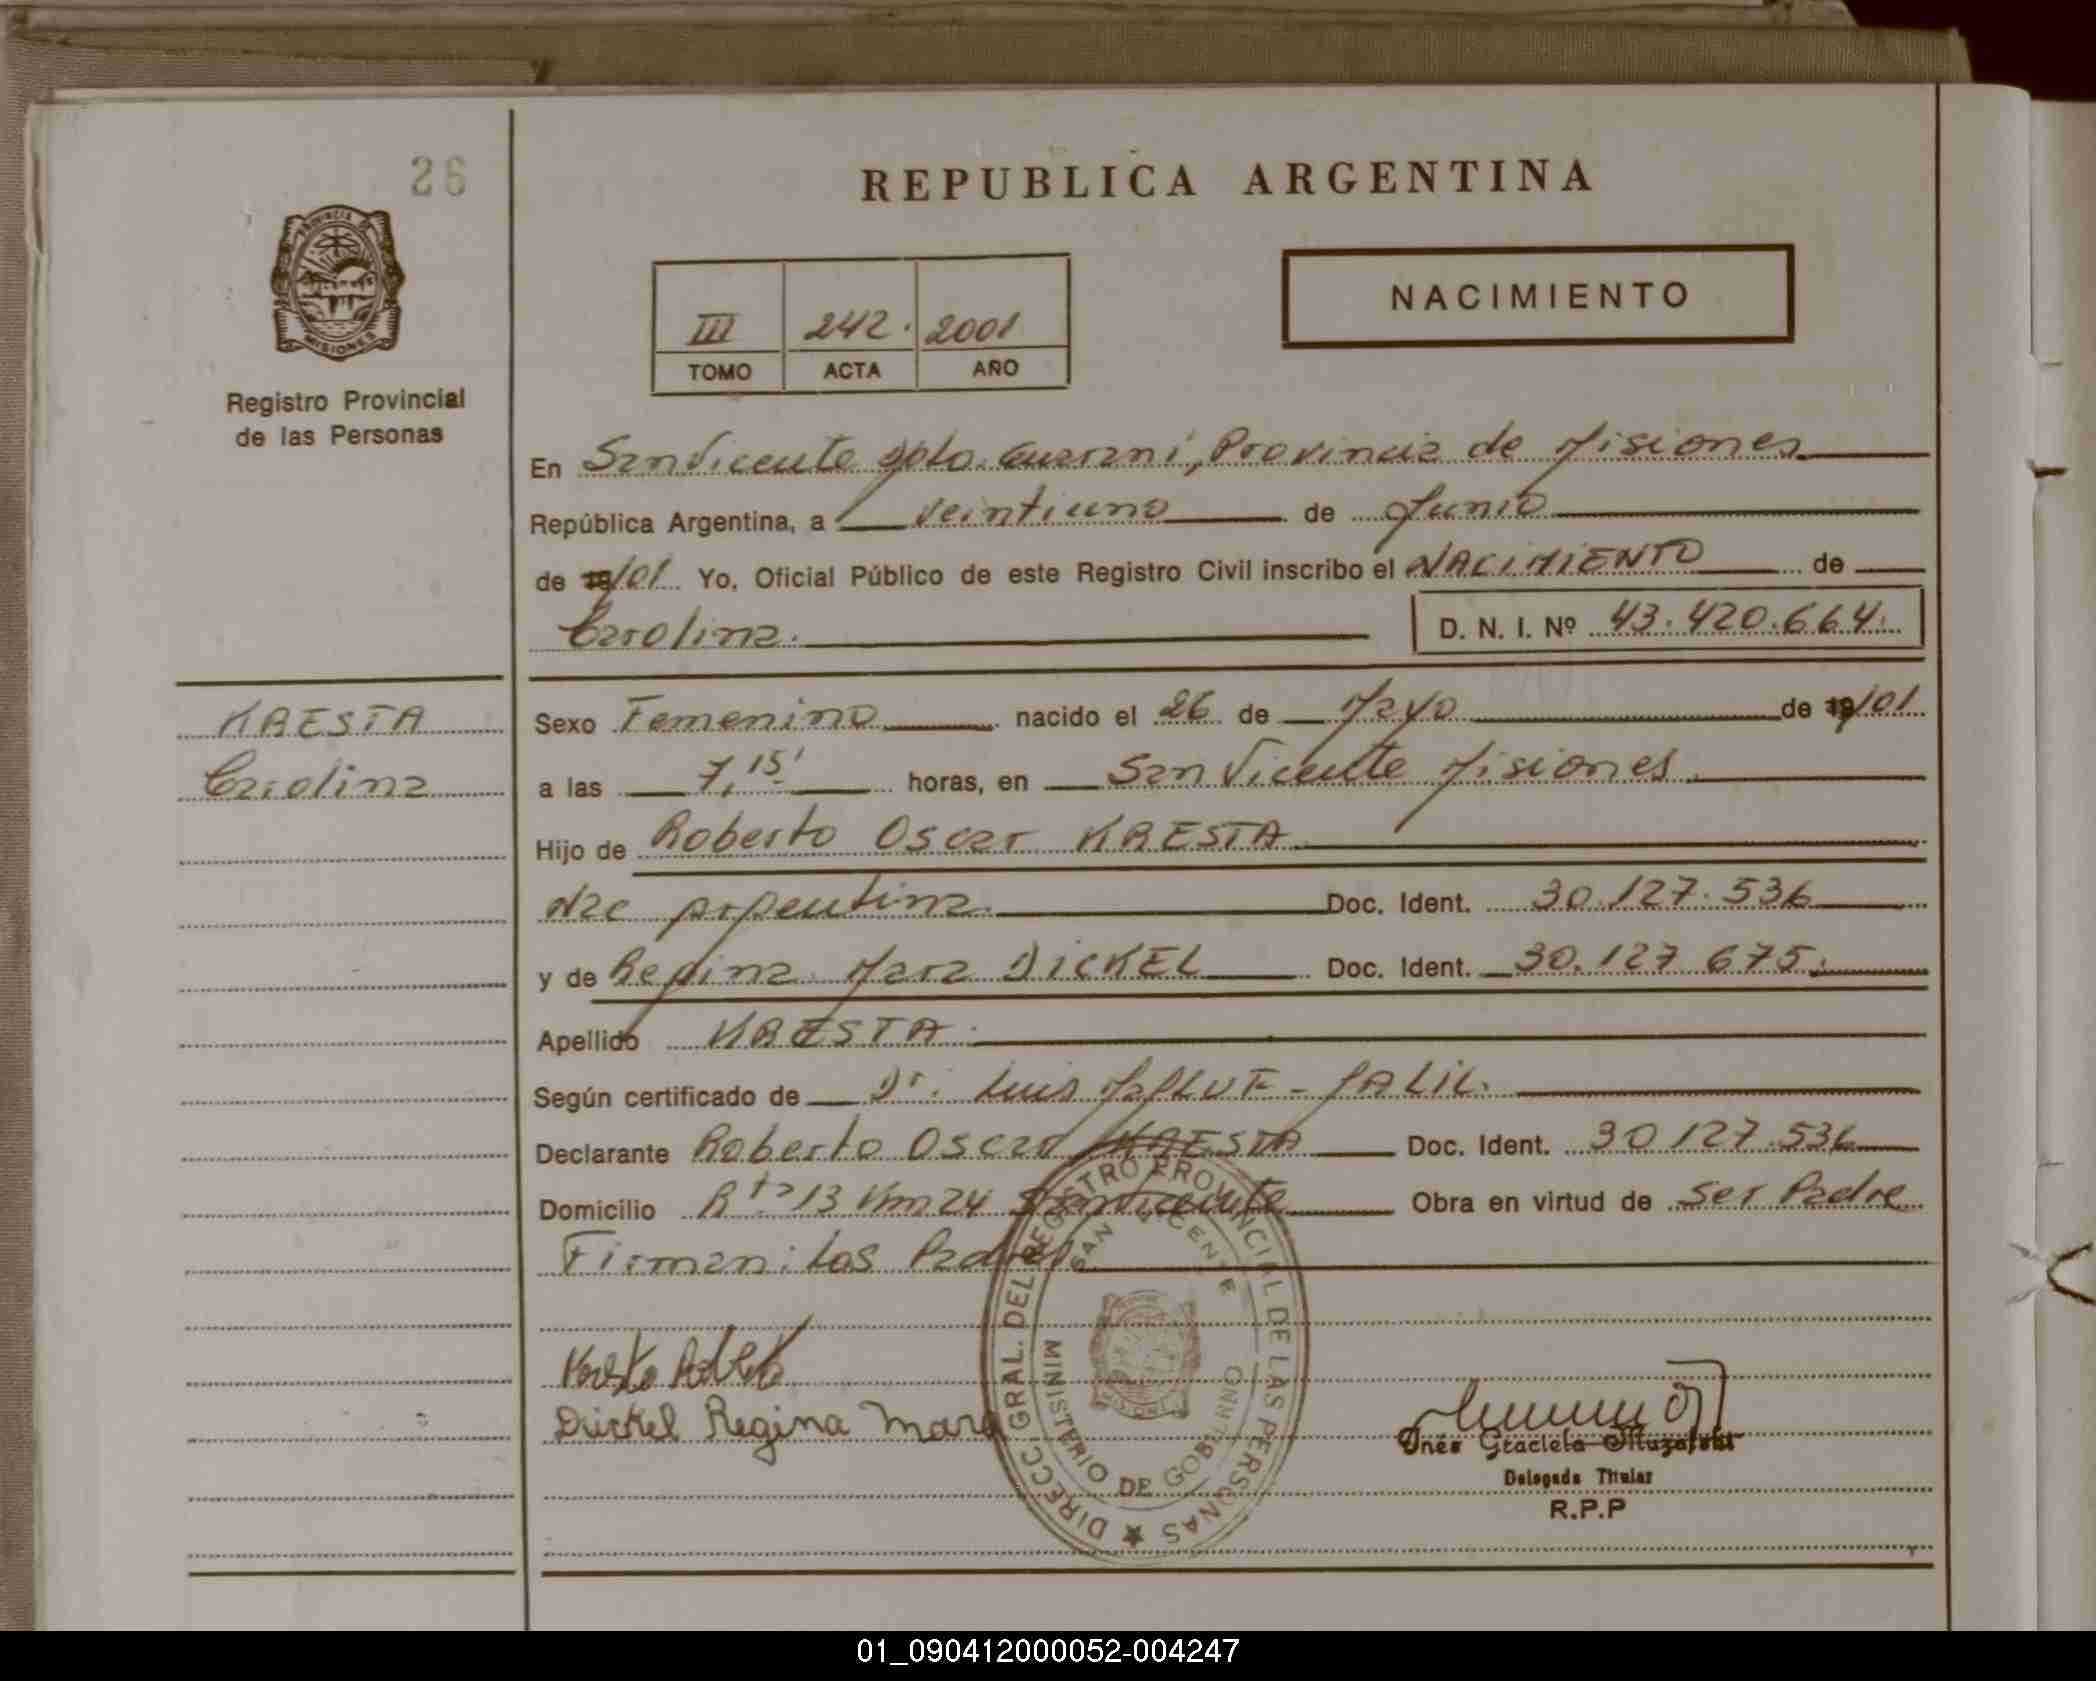 26
PROVINCIA DE
MISIONES
Registro Provincial
de las Personas
REPUBLICA ARGENTINA
III 242. 2001
TOMO ACTA AÑO
NACIMIENTO
En San Vicente Dpto. Guarani, Provincia de Misiones
República Argentina, a veintiuno de Junio
de 19/01 Yo, Oficial Público de este Registro Civil inscribo el NACIMIENTO de
Carolina. D. N. I. Nº 43.420.664.
KRESTA
Carolina
Sexo Femenino nacido el 26 de Mayo de 19/01
a las 7,15' horas, en San Vicente Misiones
Hijo de Roberto Oscar KRESTA
Nac Argentina. Doc. Ident. 30.127.536
y de Regina Mara DICKEL Doc. Ident. 30.127 675.
Apellido KRESTA
Según certificado de Dr. Luis JALIL.
Declarante Roberto Oscar KRESTA Doc. Ident. 30 127.536
Domicilio Rta 13 Km 24 San Vicente Obra en virtud de ser Padre
Firman: los Padres
Kresta Roberto
Dickel Regina Mara
DIRECC. GRAL. DEL REGISTRO PROVINCIAL DE LAS PERSONAS
SAN VICENTE
MINISTERIO DE GOBIERNO
Inés Graciela
Delegada Titular
R.P.P
01_090412000052-004247